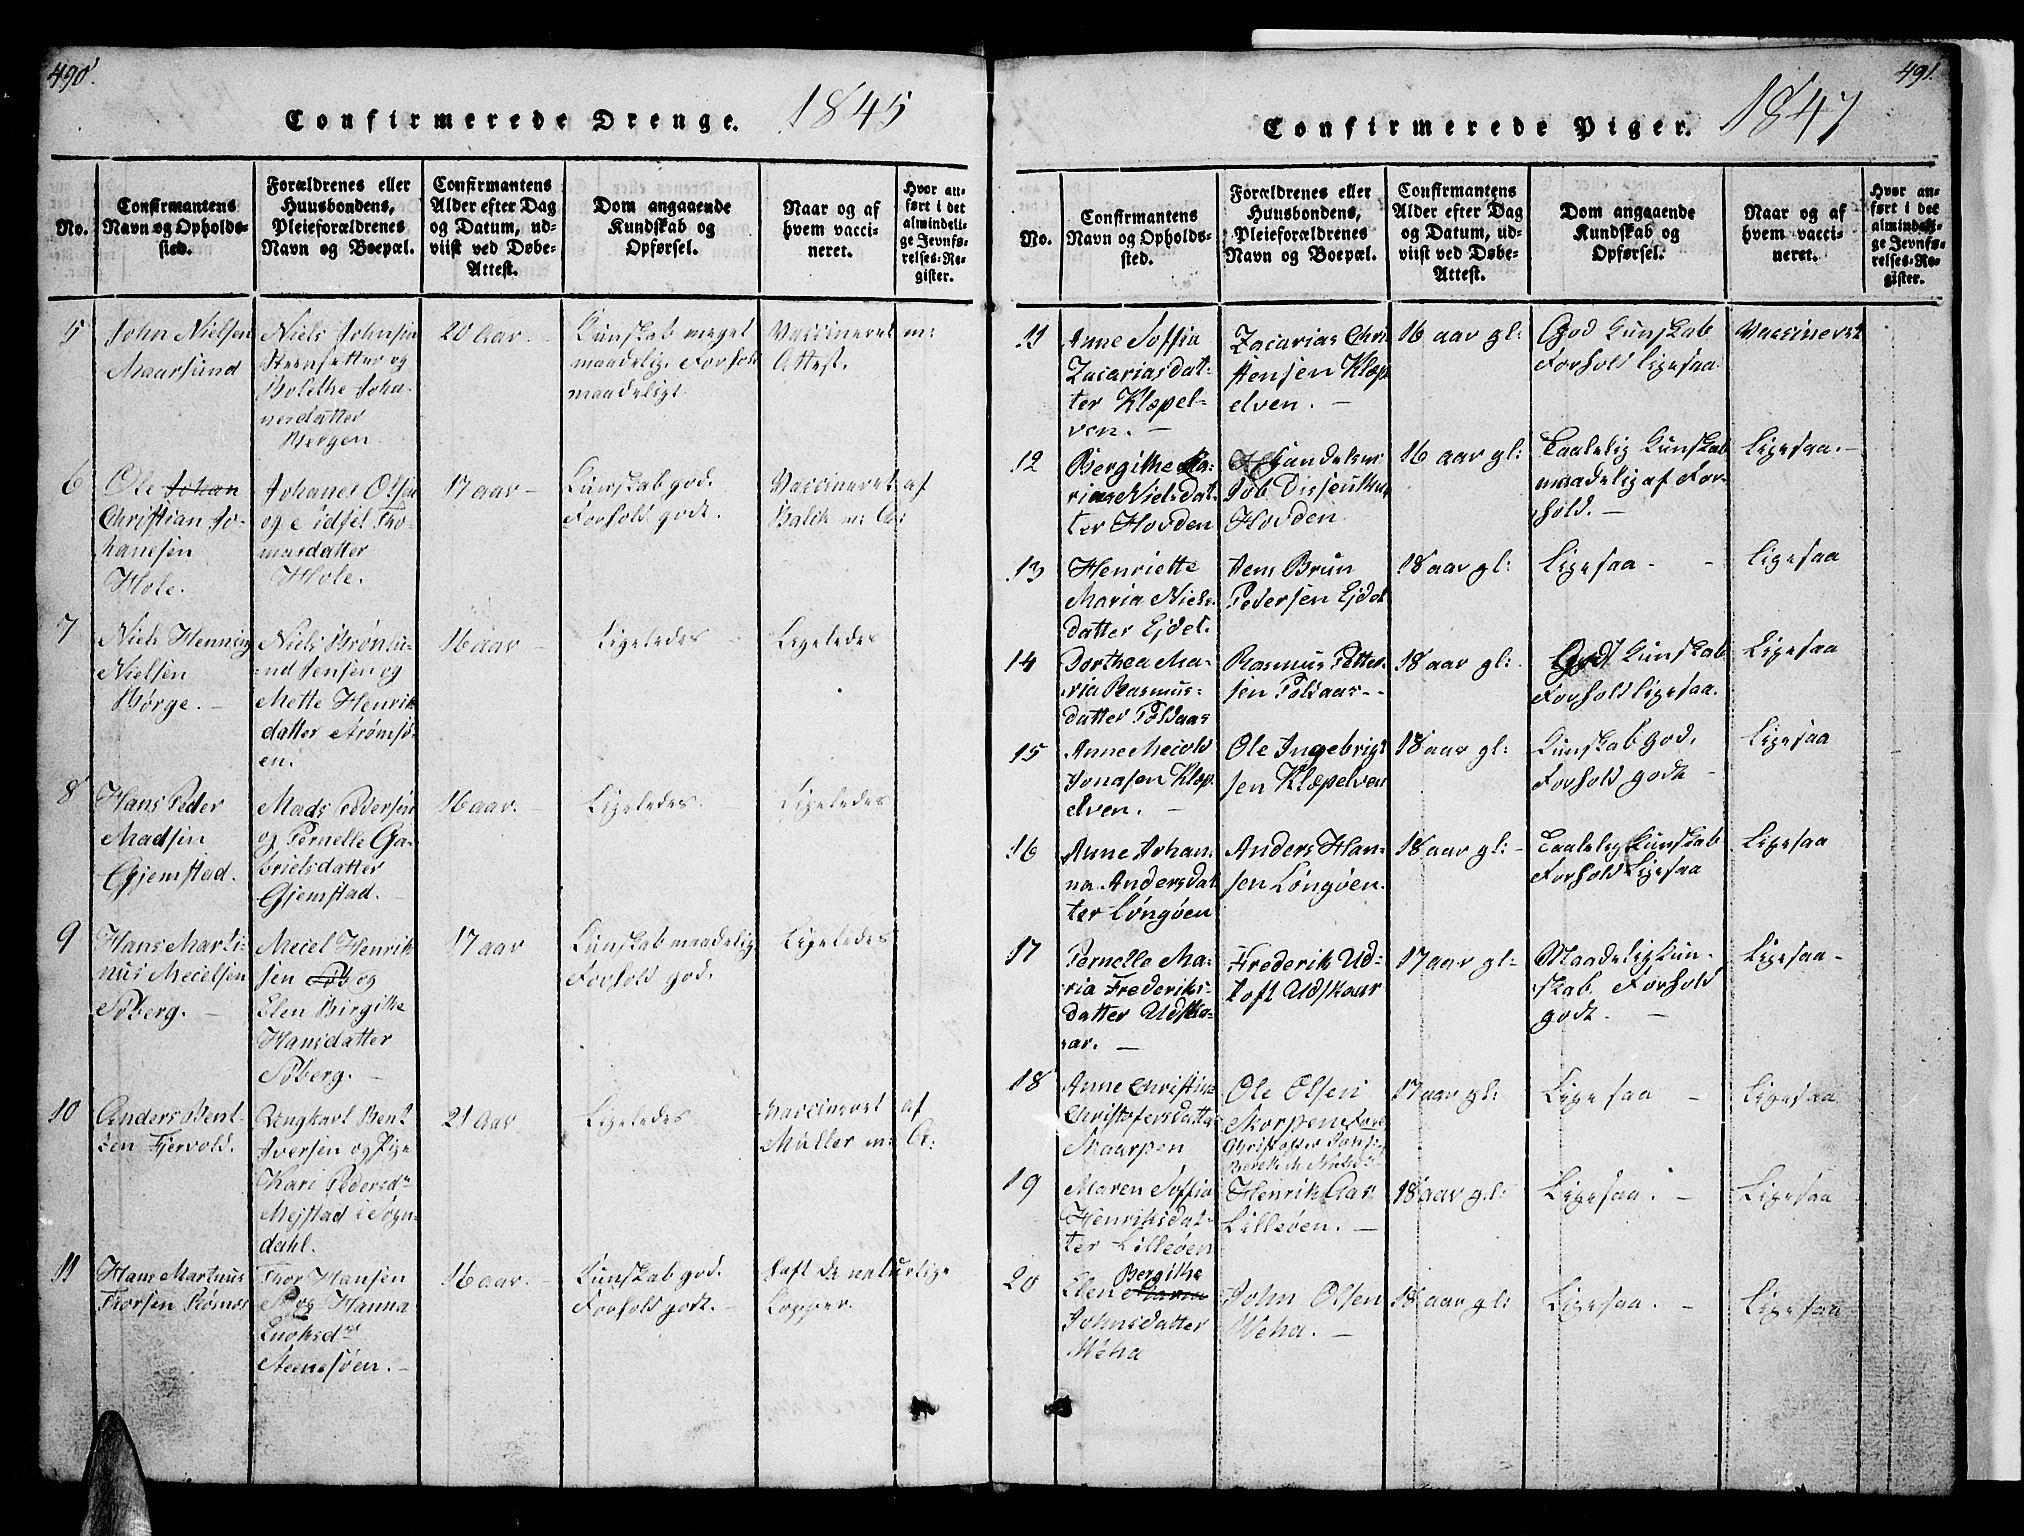 490.
Confirmerede Drenge. 1845
No.
Confirmantens
Navn og Opholds-
sted.
Forældrenes eller
Huusbondens,
Pleieforældrenes
Navn og Boepæl.
Confirmantens
Alder efter Dag
og Datum, ud-
viist ved Døbe-
Attest.
Dom angaaende
Kundskab og
Opførsel.
Naar og af
hvem vacci-
neret.
Hvor an-
ført i det
almindeli-
ge Jevnfø-
relses-Re-
gister.
5
John Nielsen
Maarsund
Niels Johnsen
Steensetter og
Bolethe Joha-
nesdatter
Bergen
20 Aar
Kunskab meget
maadelig. Forhold
maadeligt
Vaccineret m:
Attest.
6
Ole Johan
Christian Jo-
hanesen
Hole.
Johanes Olsen
og Sidsel Tho-
masdatter
Hole.
17 aar –
Kunskab god.
Forhold godt.
Vaccineret af
Balik m: A:
7
Niels Henning
Nielsen
Børge. –
Niels Brønlu-
nd Jensen og
Mette Henrik
datter Strømsø-
en.
16 aar –
Ligeledes –
Ligeledes
8
Hans Peder
Madsen
Gjemstad.
Mads Pedersen
og Pernelle Ga-
brielsdatter
Gjemstad. –
16 aar. –
Ligeledes.
Ligeledes
9
Hans Marti-
nus Mecelsen
Søberg. –
Mecel Henrik
sen Søb og
Elen Birgithe
Hansdatter
Søberg. –
17 aar
Kunskab maadelig
Forhold god.
Ligeledes
10
Anders Bent-
sen Fjervold.
Ungkarl Bent
Iversen og Pige
Kari Pedersdr
Mejstad i Sogn-
dahl.
21 Aar
Ligeledes
Vaccineret af
Müller m: A:
11
Hans Martnus
Thorsen Rösnæs
Thor Hansen
S og Hanna
Enoksdr
Steenesøen. –
16 aar. –
Kunskab god.
Forhold godt. –
Haft de naturlige
Kopper.
491.
Confirmerede Piger. 1847
No.
Confirmantens
Navn og Opholds-
sted.
Forældrenes eller
Huusbondens,
Pleieforældrenes
Navn og Boepæl.
Confirmantens
Alder efter Dag
og Datum, ud-
viist ved Døbe-
Attest.
Dom angaaende
Kundskab og
Opførsel.
Naar og af
hvem vacci-
neret.
Hvor an-
ført i det
almindeli-
ge Jevnfø-
relses-Re-
gister.
11
Anne Soffia
Zacariasdat-
ter Klæpel-
ven. –
Zacarias Chri
stensen Klæp
elven. –
16 aar gl:
God Kunskab
Forhold ligesaa
Vaccineret
12
Bergithe Ma-
rie Nielsdat-
ter Hovden
Handelsm:
Job Dissenthun
Hovden
16 aar gl:
Taalelig Kunskab
maadelig af For-
hold. –
Ligesaa. –
13
Henriette
Maria Niels-
datter Ejdet.
Jens Brun
Pedersen Ejdet
18 aar gl:
Ligesaa – –
Ligesaa
14
Dorthea Ma-
ria Rasmus-
datter Toldaas
Rasmus Petter
sen Toldaas –
18 aar gl:
God Kunskab
Forhold ligesaa.
Ligesaa
15
Anne Mecold
Jonasen Klæp
elven. –
Ole Ingebrigt
sen Klæpelven
18 aar gl:
Kunskab god,
Forhold godt –
Ligesaa
16
Anne Johan-
na Andersdat
ter Løngøen
Anders Han-
sen Løngøen.
18 aar gl: –
Taalelig Kunskab
Forhold Ligesaa
Ligesaa
17
Pernelle Ma-
ria Frederiks-
datter Udska-
ar. –
Frederik Ud-
toft Udskaar
17 aar gl:
Maadelig Kun-
skab Forhold
godt. –
Ligesaa –
18
Anne Christine
Christofersdatter
Skarpen
Ole Olsen
Skorpen
17 aar gl:
Ligesaa –
Ligesaa
19
Maren Soffia
Henriksdat-
ter Lilleøen
Henrik Aas
Lilleøen. –
18 aar gl:
Ligesaa. –
Ligesaa
20
Bergithe
Elen Maria
Johnsdatter
Weha
John Olsen
Weha. –
18 aar gl:
Ligesaa. –
Ligesaa